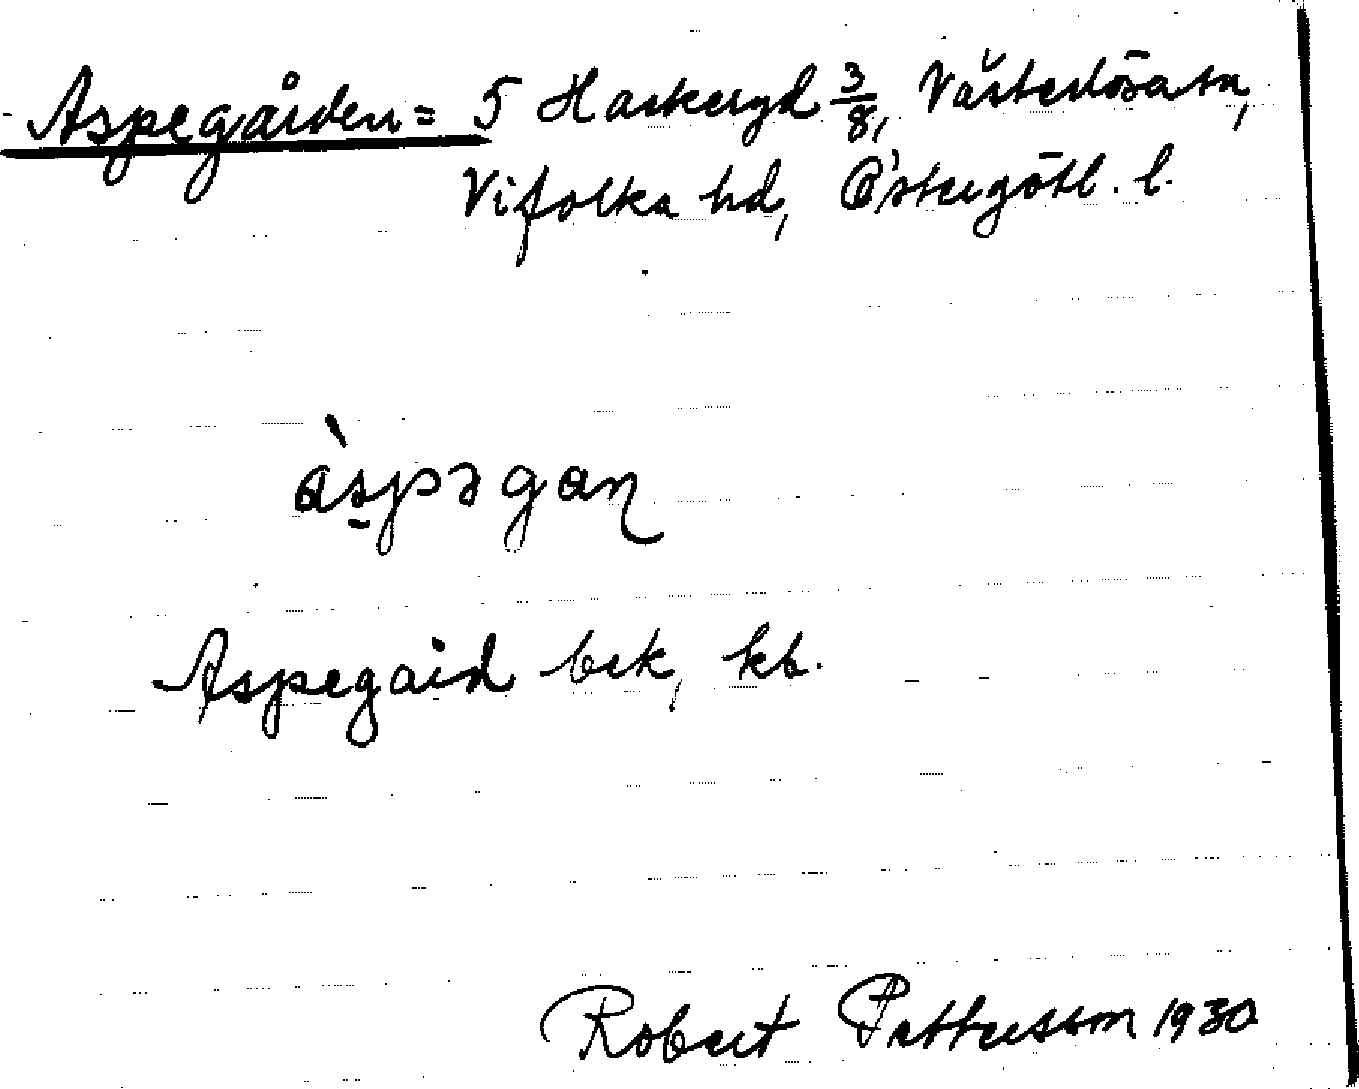 Aspegården = 5 Harkeryd 3/8, Västerlösa sn,
Vifolka hd, Östergötl. l.
àspəgaṇ
Aspegård bek, kb.
Robert Pettersson 1930